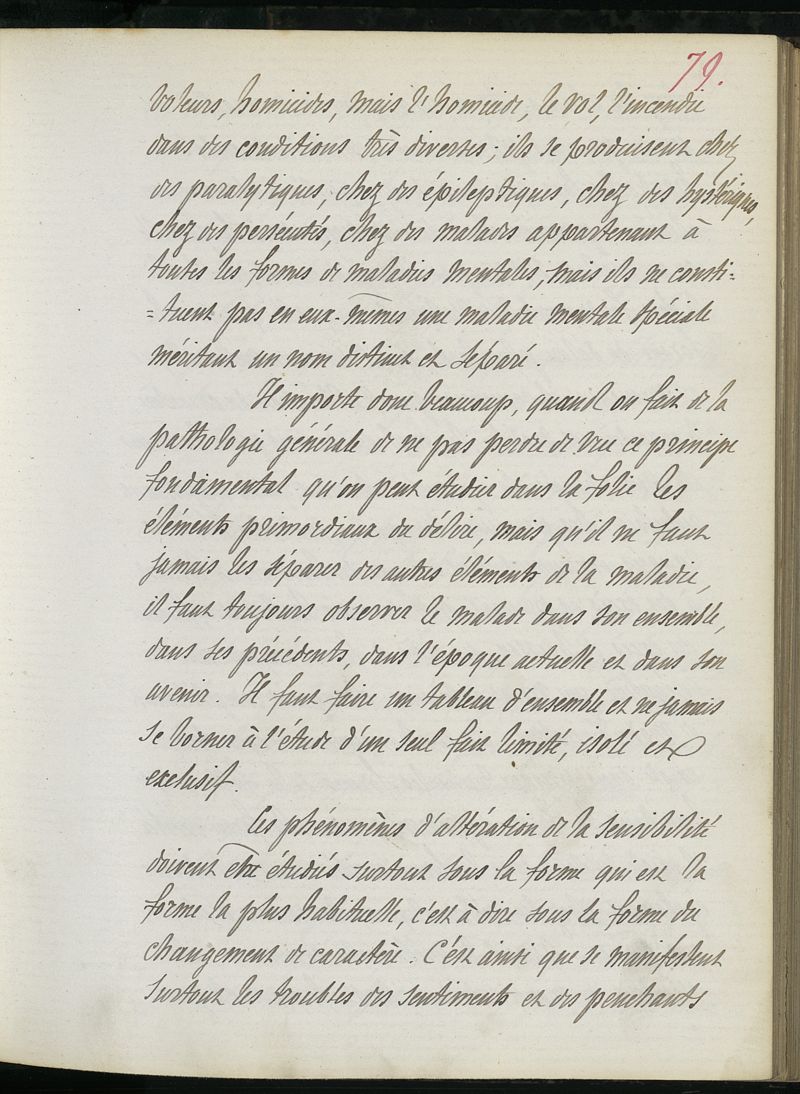 79.
voleurs, homicides, mais l'homicide, le vol, l'incendie
dans des conditions très diverses; ils se produisent chez
des paralytiques, chez des épileptiques, chez des hystériques,
chez des persécutés, chez des malades appartenant à
toutes les formes de maladies mentales, mais ils ne consti-
=tuent pas en eux-mêmes une maladie mentale spéciale
méritant un nom distinct et séparé.
Il importe donc beaucoup, quand on fait de la
pathologie générale de ne pas perdre de vue ce principe
fondamental qu'on peut étudier dans la folie les
éléments primordiaux du délire, mais qu'il ne faut
jamais les séparer des autres éléments de la maladie,
il faut toujours observer le malade dans son ensemble,
dans ses précédents, dans l'époque actuelle et dans son
avenir. Il faut faire un tableau d'ensemble et ne jamais
se borner à l'étude d'un seul fait limité, isolé et
exclusif.
Ces phénomènes d'altération de la sensibilité
doivent être étudiés surtout sous la forme qui est la
forme la plus habituelle, c'est à dire sous la forme du
changement de caractère. C'est ainsi que se manifestent
surtout les troubles des sentiments et des penchants